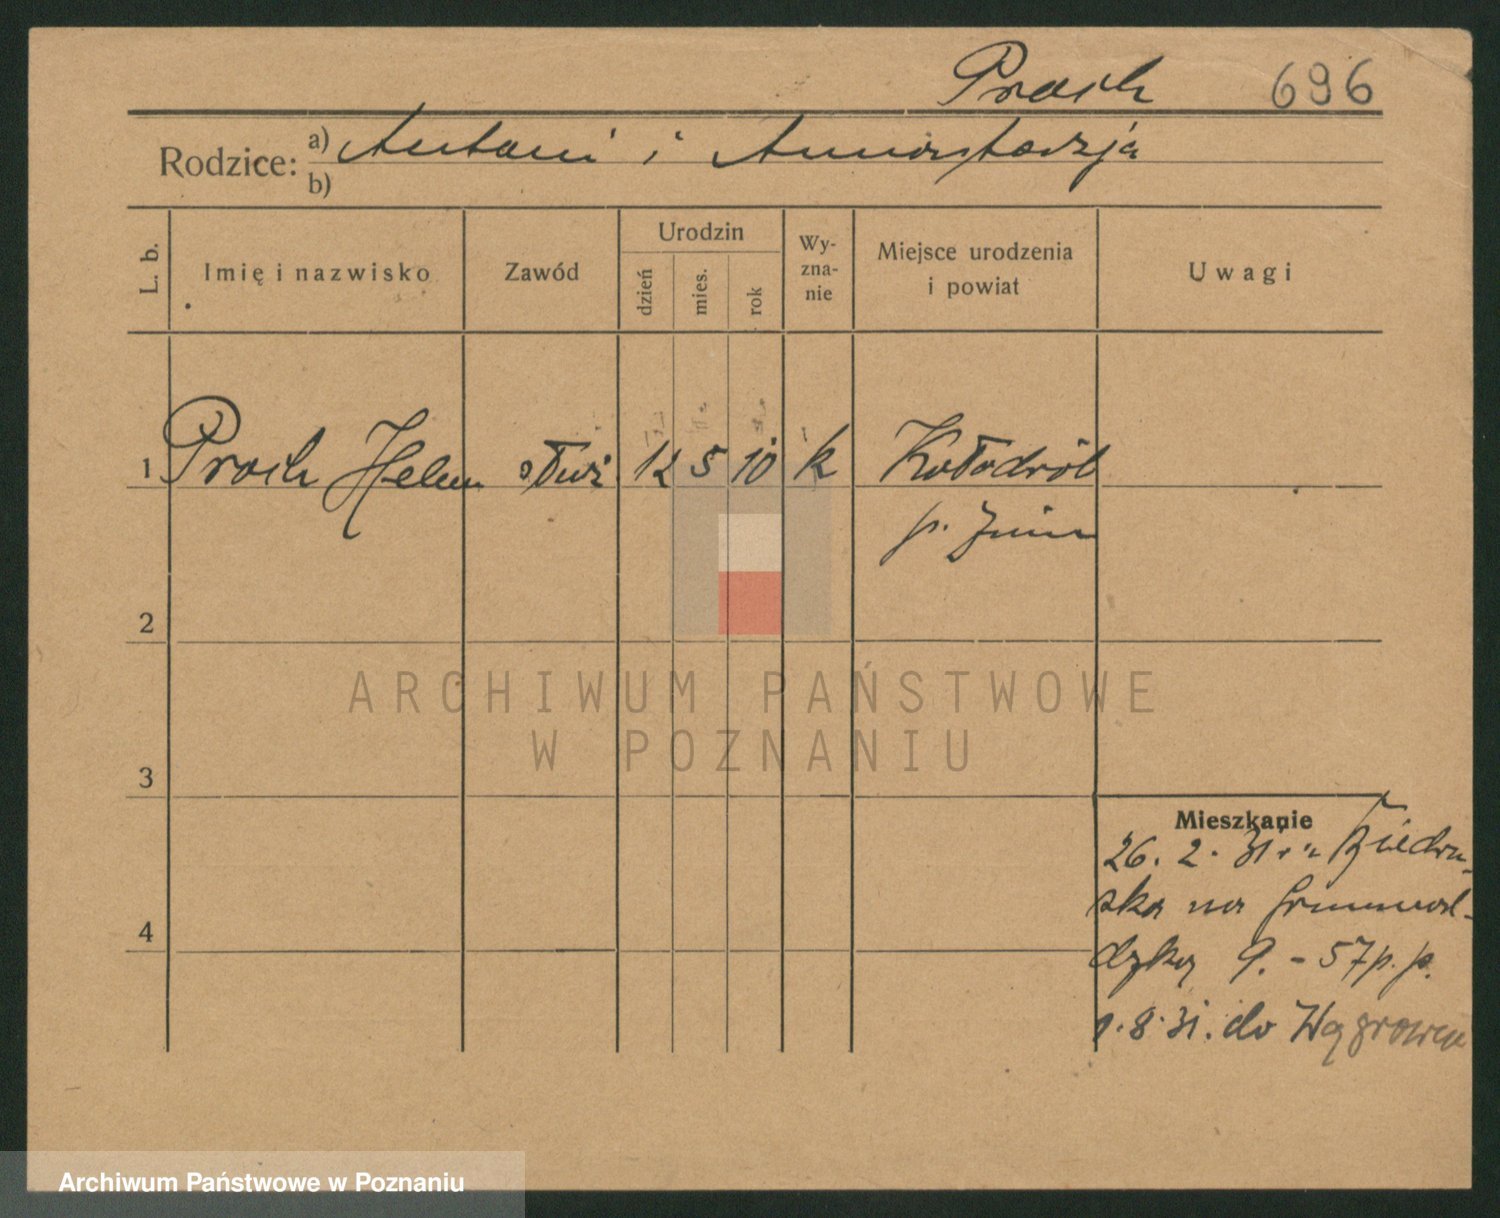 Proch 696
Rodzice: a) Antoni i Annastazja
b)
L. b. Imię i nazwisko Zawód Urodzin dzień mies. rok Wy-zna-nie Miejsce urodzenia i powiat Uwagi
1 Proch Helena służ. 12 5 10 k Kołodrób
p. Żnin
2
3
4
Mieszkanie
26. 2. 31 r. z Biedru-
ska na Grunwal-
dzką 9. - 57 p. p.
1. 8. 31. do Wągrowca
ARCHIWUM PAŃSTWOWE
W POZNANIU
Archiwum Państwowe w Poznaniu